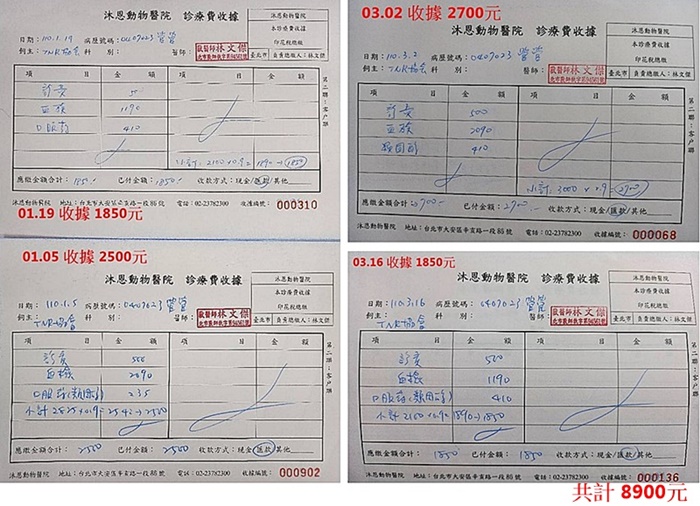 沐恩動物醫院 診療費收據
沐恩動物醫院
本診療費收據
印花稅總繳
臺北市 負責總繳人:林文傑
日期:110.1.19 病歷號碼:0409023
飼主:TNR協會 科別: 醫師:
獸醫師林文傑
項 目 金 額 項 目 金 額
診察 500
血檢 1190
口服藥 410
小計:2100×0.9=1890→1850
應繳金額合計:1850 已付金額: 收款方式:現金/匯款/其他
沐恩動物醫院 地址:台北市大安區辛亥路一段86號 電話:02-23782300 收據編號:000310
第二聯:客戶聯
01.19 收據 1850元
03.02 收據 2700元
沐恩動物醫院 診療費收據
沐恩動物醫院
本診療費收據
印花稅總繳
臺北市 負責總繳人:林文傑
日期:110.3.2 病歷號碼:0409023
飼主:TNR協會 科別: 醫師:
獸醫師林文傑
項 目 金 額 項 目 金 額
診察 500
血檢 2090
類固醇 410
小計:3000×0.9=2700
應繳金額合計:2700 已付金額:2700 收款方式:現金/匯款/其他
沐恩動物醫院 地址:台北市大安區辛亥路一段86號 電話:02-23782300 收據編號:000068
第二聯:客戶聯
01.05 收據 2500元
沐恩動物醫院 診療費收據
沐恩動物醫院
本診療費收據
印花稅總繳
臺北市 負責總繳人:林文傑
日期:110.1.5 病歷號碼:0409023
飼主:TNR協會 科別: 醫師:
獸醫師林文傑
項 目 金 額 項 目 金 額
診察 500
血檢 2090
口服藥(類固醇) 235
小計 2825×0.9=2542→2500
應繳金額合計:2500 已付金額:2500 收款方式:現金/匯款/其他
沐恩動物醫院 地址:台北市大安區辛亥路一段86號 電話:02-23782300 收據編號:000902
第二聯:客戶聯
03.16 收據 1850元
沐恩動物醫院 診療費收據
沐恩動物醫院
本診療費收據
印花稅總繳
臺北市 負責總繳人:林文傑
日期:110.3.16 病歷號碼:0409023
飼主:TNR協會 科別: 醫師:
獸醫師林文傑
項 目 金 額 項 目 金 額
診察 500
血檢 1190
口服藥(類固醇) 410
小計 2100×0.9=1890→1850
應繳金額合計:1850 已付金額:1850 收款方式:現金/匯款/其他
沐恩動物醫院 地址:台北市大安區辛亥路一段86號 電話:02-23782300 收據編號:000136
第二聯:客戶聯
共計 8900元